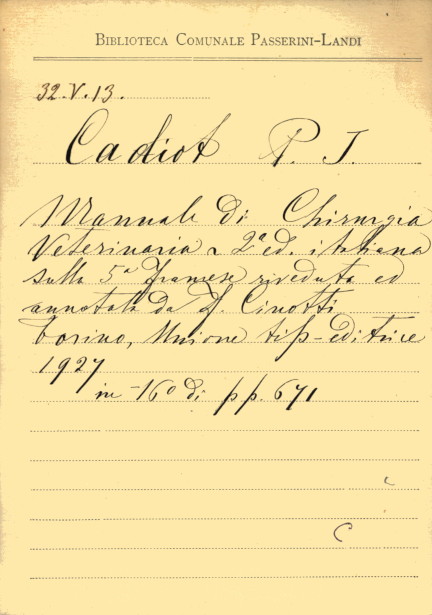 BIBLIOTECA COMUNALE PASSERINI-LANDI
32.V.13.
Cadiot P. J.
Manuale di Chirurgia
Veterinaria 2ª ed. italiana
sulla 5ª francese riveduta ed
annotata da F. Cinotti
Torino, Unione tip-editrice
1927
in -16º di pp. 671